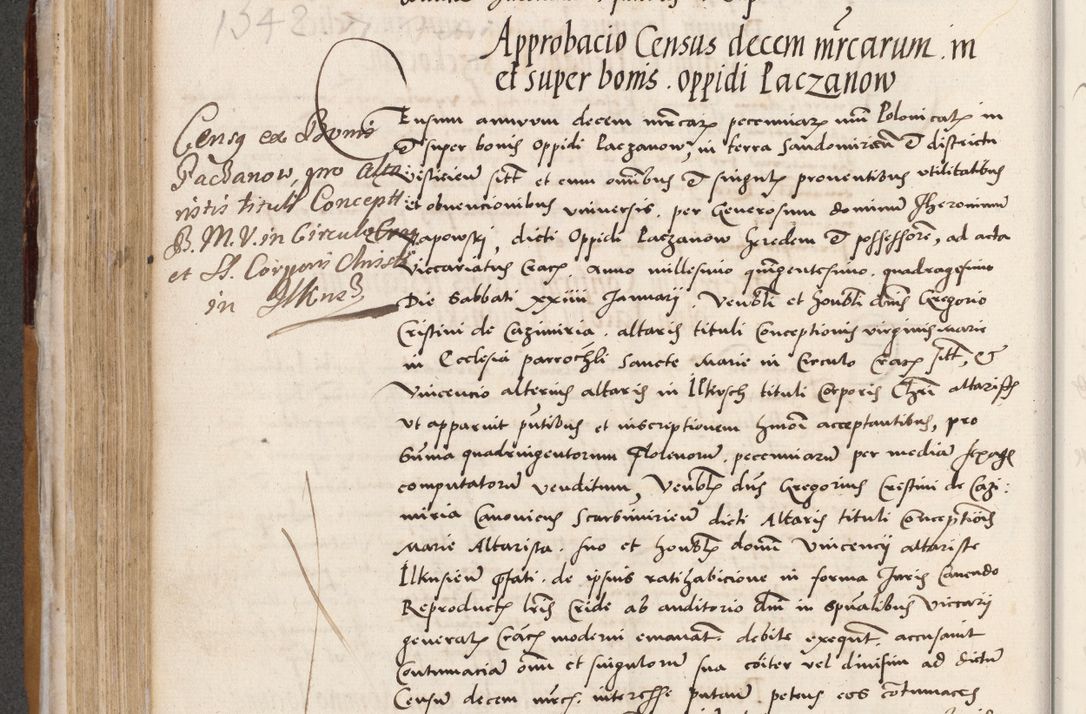 1542
Approbacio Census decem mrcarum in
et super bonis oppidi Paczanow
Censq ex Bonis
Paczanow, pro Alta
ristis tituli Concepti
B. M. V. in Circulo Crac
et SS. Corporis Christi
in Ilkus
Censum annuum decem mrcarz pecuniarz nui Polonicalz in
et super bonis Oppidi Paczanow, in terra Sandomirien et districtu
Visliciens sitt et cum omibus et singulz proventibus utilitatibus
et obvencionibus universis, per Generosum dominum Iheronimum
Lapowski, dicti Oppidi Paczanow heredem et possessorē, ad acta
Viccariatus Cracz. Anno millesimo quingentesimo quadragesimo
Die Sabbati xxiiii Januarij. Venbli et honbli dnis Gregorio
Cristini de Cazimiria, altaris tituli Conceptionis virginis Marie
in Ecclesia parrochli Sancte Marie in Circulo Cracz sitt, et
Vincencio alterius altaris in Ilkusch tituli Corporis Chri altaristis
ut apparuit pntibus et inscriptionem hmoi acceptantibus, pro
Suma quadringentorum Florenorum, pecuniarum per mediam sexagenam
computatorum venditum, Venblz dns Gregorius Cristini de Cazi:
miria Canonicus Scarbimiriens dicti Altaris tituli Conceptiois
Marie Altarista. suo et honblz domi Vincencij altariste
Ilkusiens pfati. de ipsius ratihabicione in forma Juris Cavendo
Reproductz lris Cride ab auditorio dni in spualibus Viccarij
generalz Cracz moderni emanatz. debite exequtz. accusavit
Contumaciam omm et singulorum sua coiter vel divisim ad dictum
Censum decem mrcz. interesse putanm petens eos contumaces